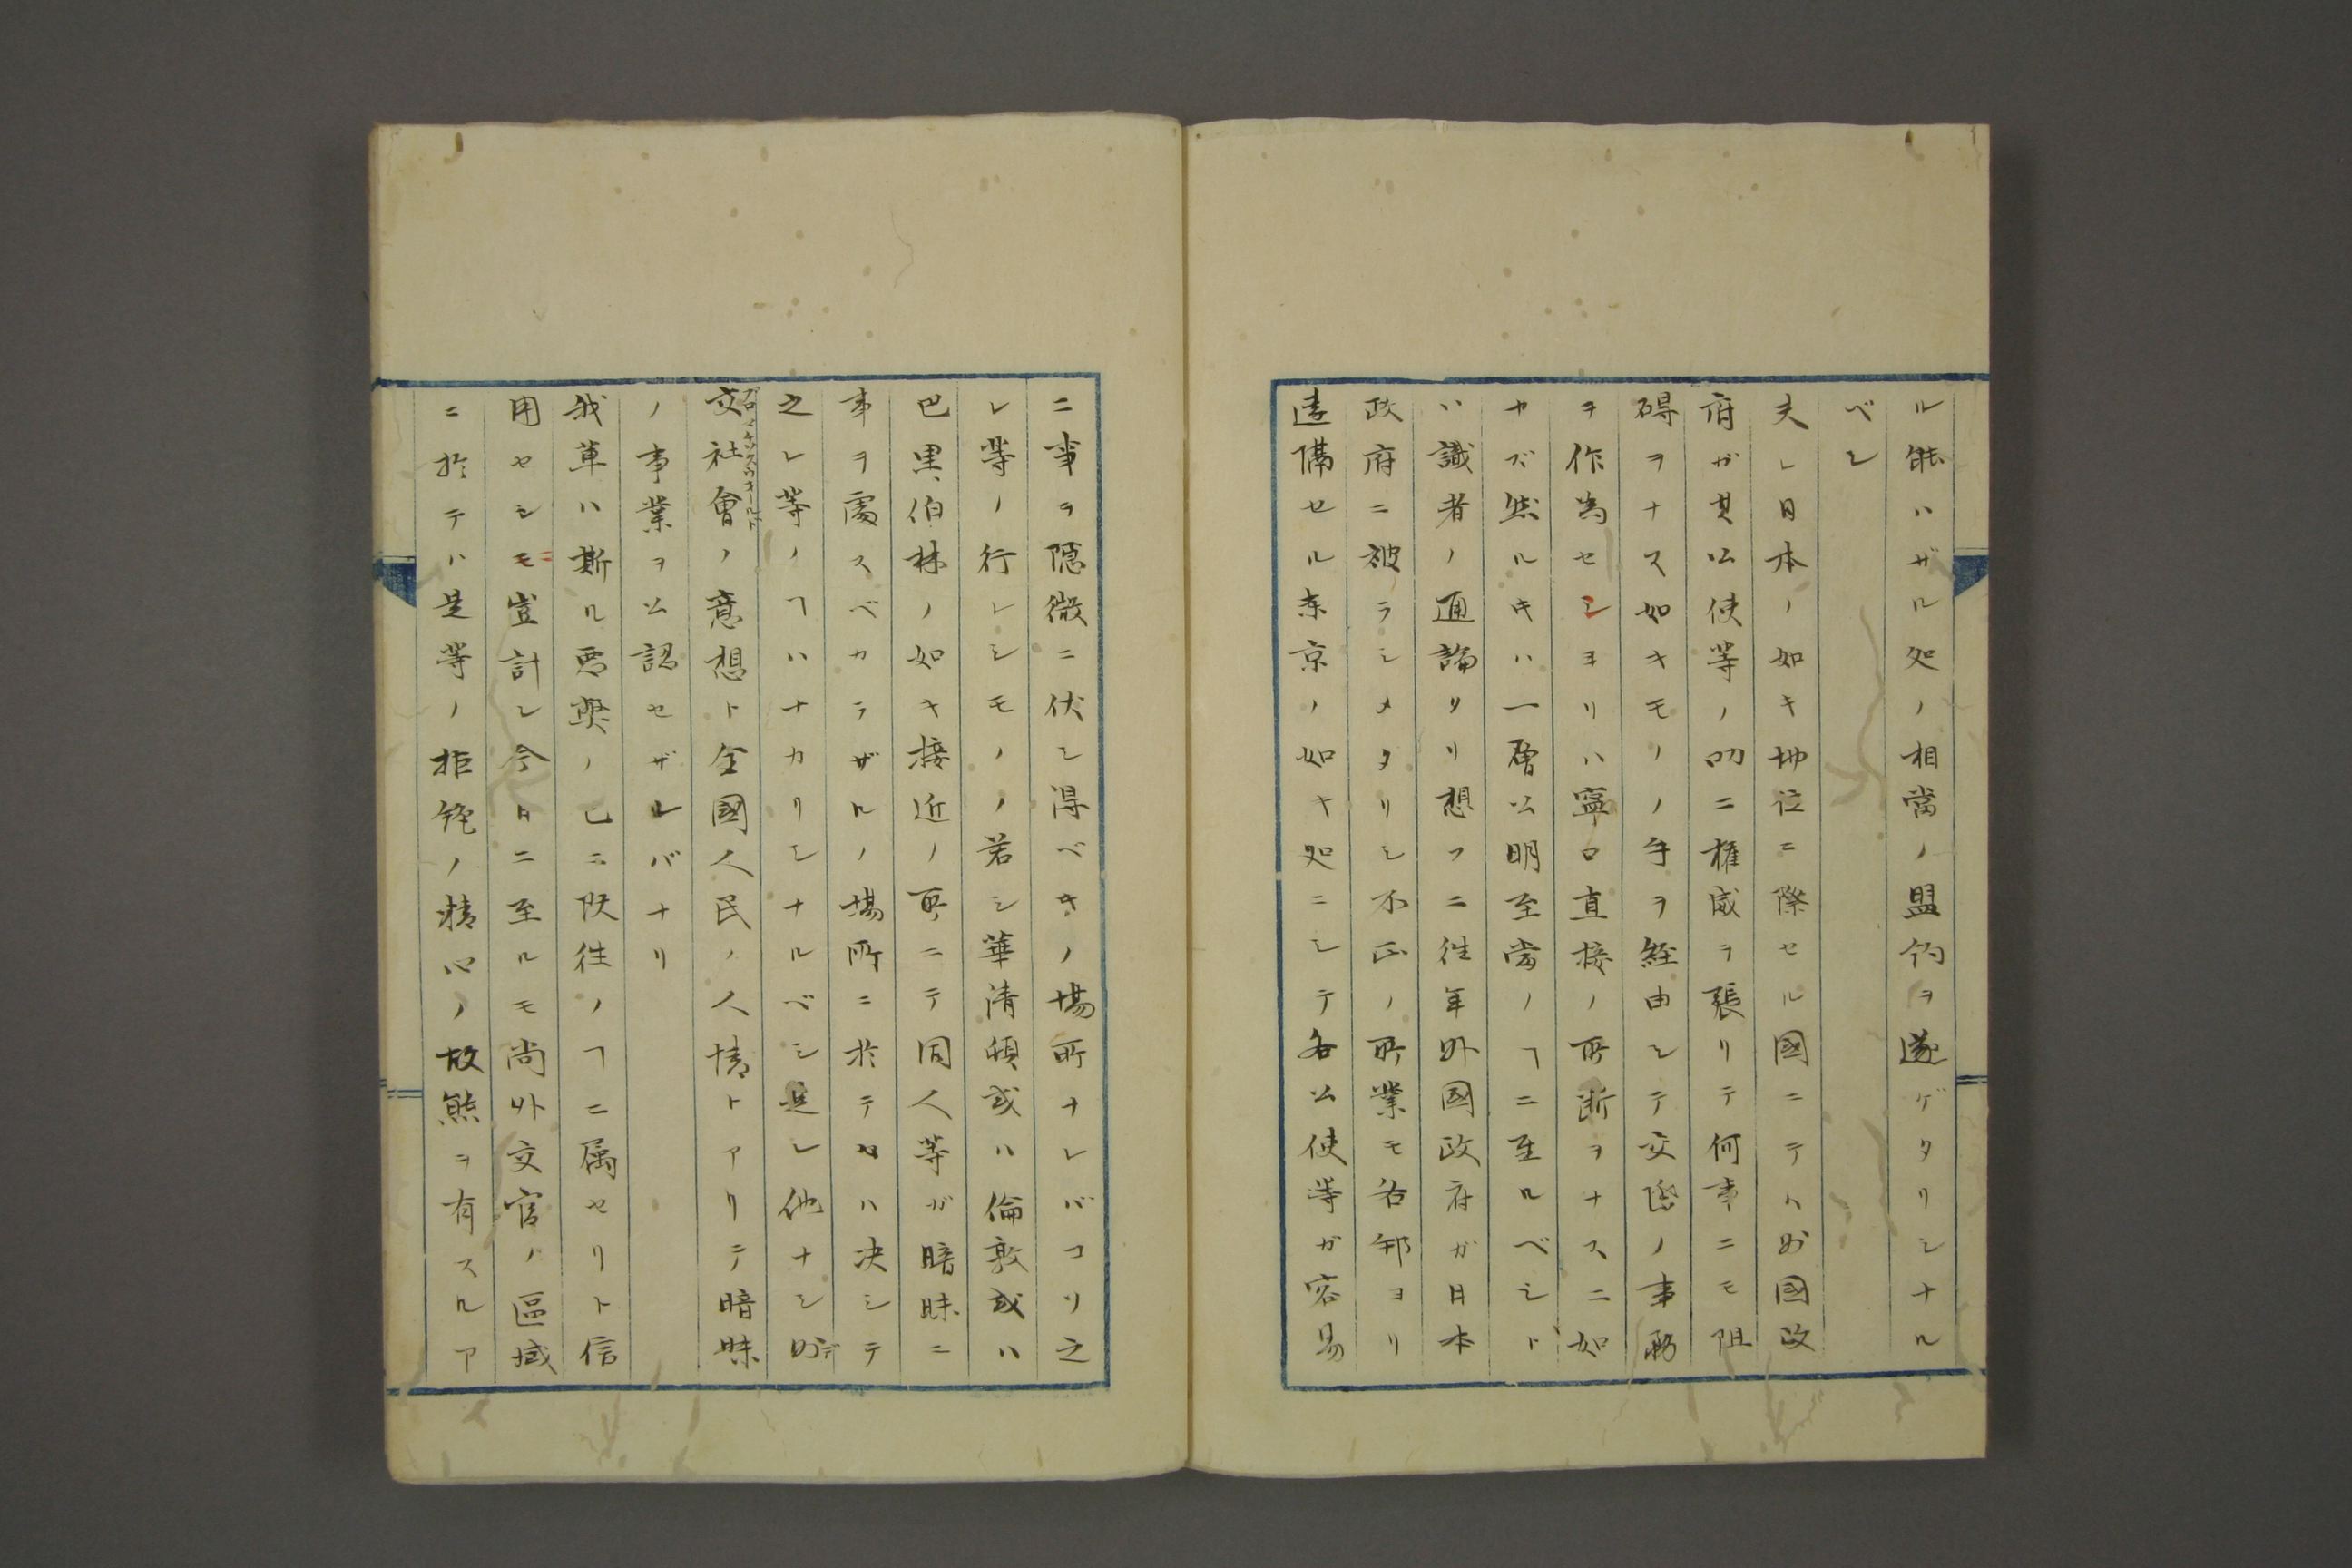 ル能ハザル処ノ相當ノ盟約ヲ遂ゲタリシナル
ベシ
夫レ日本ノ如キ地位ニ際セル國ニテハ外國政
府ガ其公使等ノ叨ニ權威ヲ張リテ何事ニモ阻
碍ヲナス如キモノノ手ヲ經由シテ交際ノ事務
ヲ作為セシヨリハ寧ロ直接ノ所断ヲナスニ如
カズ然ルキハ一層公明至當ノヿニ至ルベシト
ハ識者ノ通論ゝリ想フニ往年外國政府ガ日本
政府ニ被ラシメタリシ不正ノ所業モ各邦ヨリ
遠隔セル東京ノ如キ処ニシテ各公使等ガ容易
ニ事ヲ隠微ニ伏シ得ベキノ場所ナレバコソ之
レ等ノ行レシモノノ若シ華清頓或ハ倫敦或ハ
巴里、伯林ノ如キ接近ノ所ニテ同人等ガ暗昧ニ
事ヲ處スベカラザルノ場所ニ於テハ决シテ
之レ等ノヿハナカリシナルベシ是レ他ナシ
交社會ノ意想ト全國人民ノ人情トアリテ暗昧
ノ事業ヲ公認セザレバナリ
我輩ハ斯ル悪弊ノ已ニ既往ノヿニ属セリト信
用セシモ豈計シ今日ニ至ルモ尚外交官ノ區域
ニ於テハ是等ノ拒絶ノ精心ノ故態ヲ有スルア